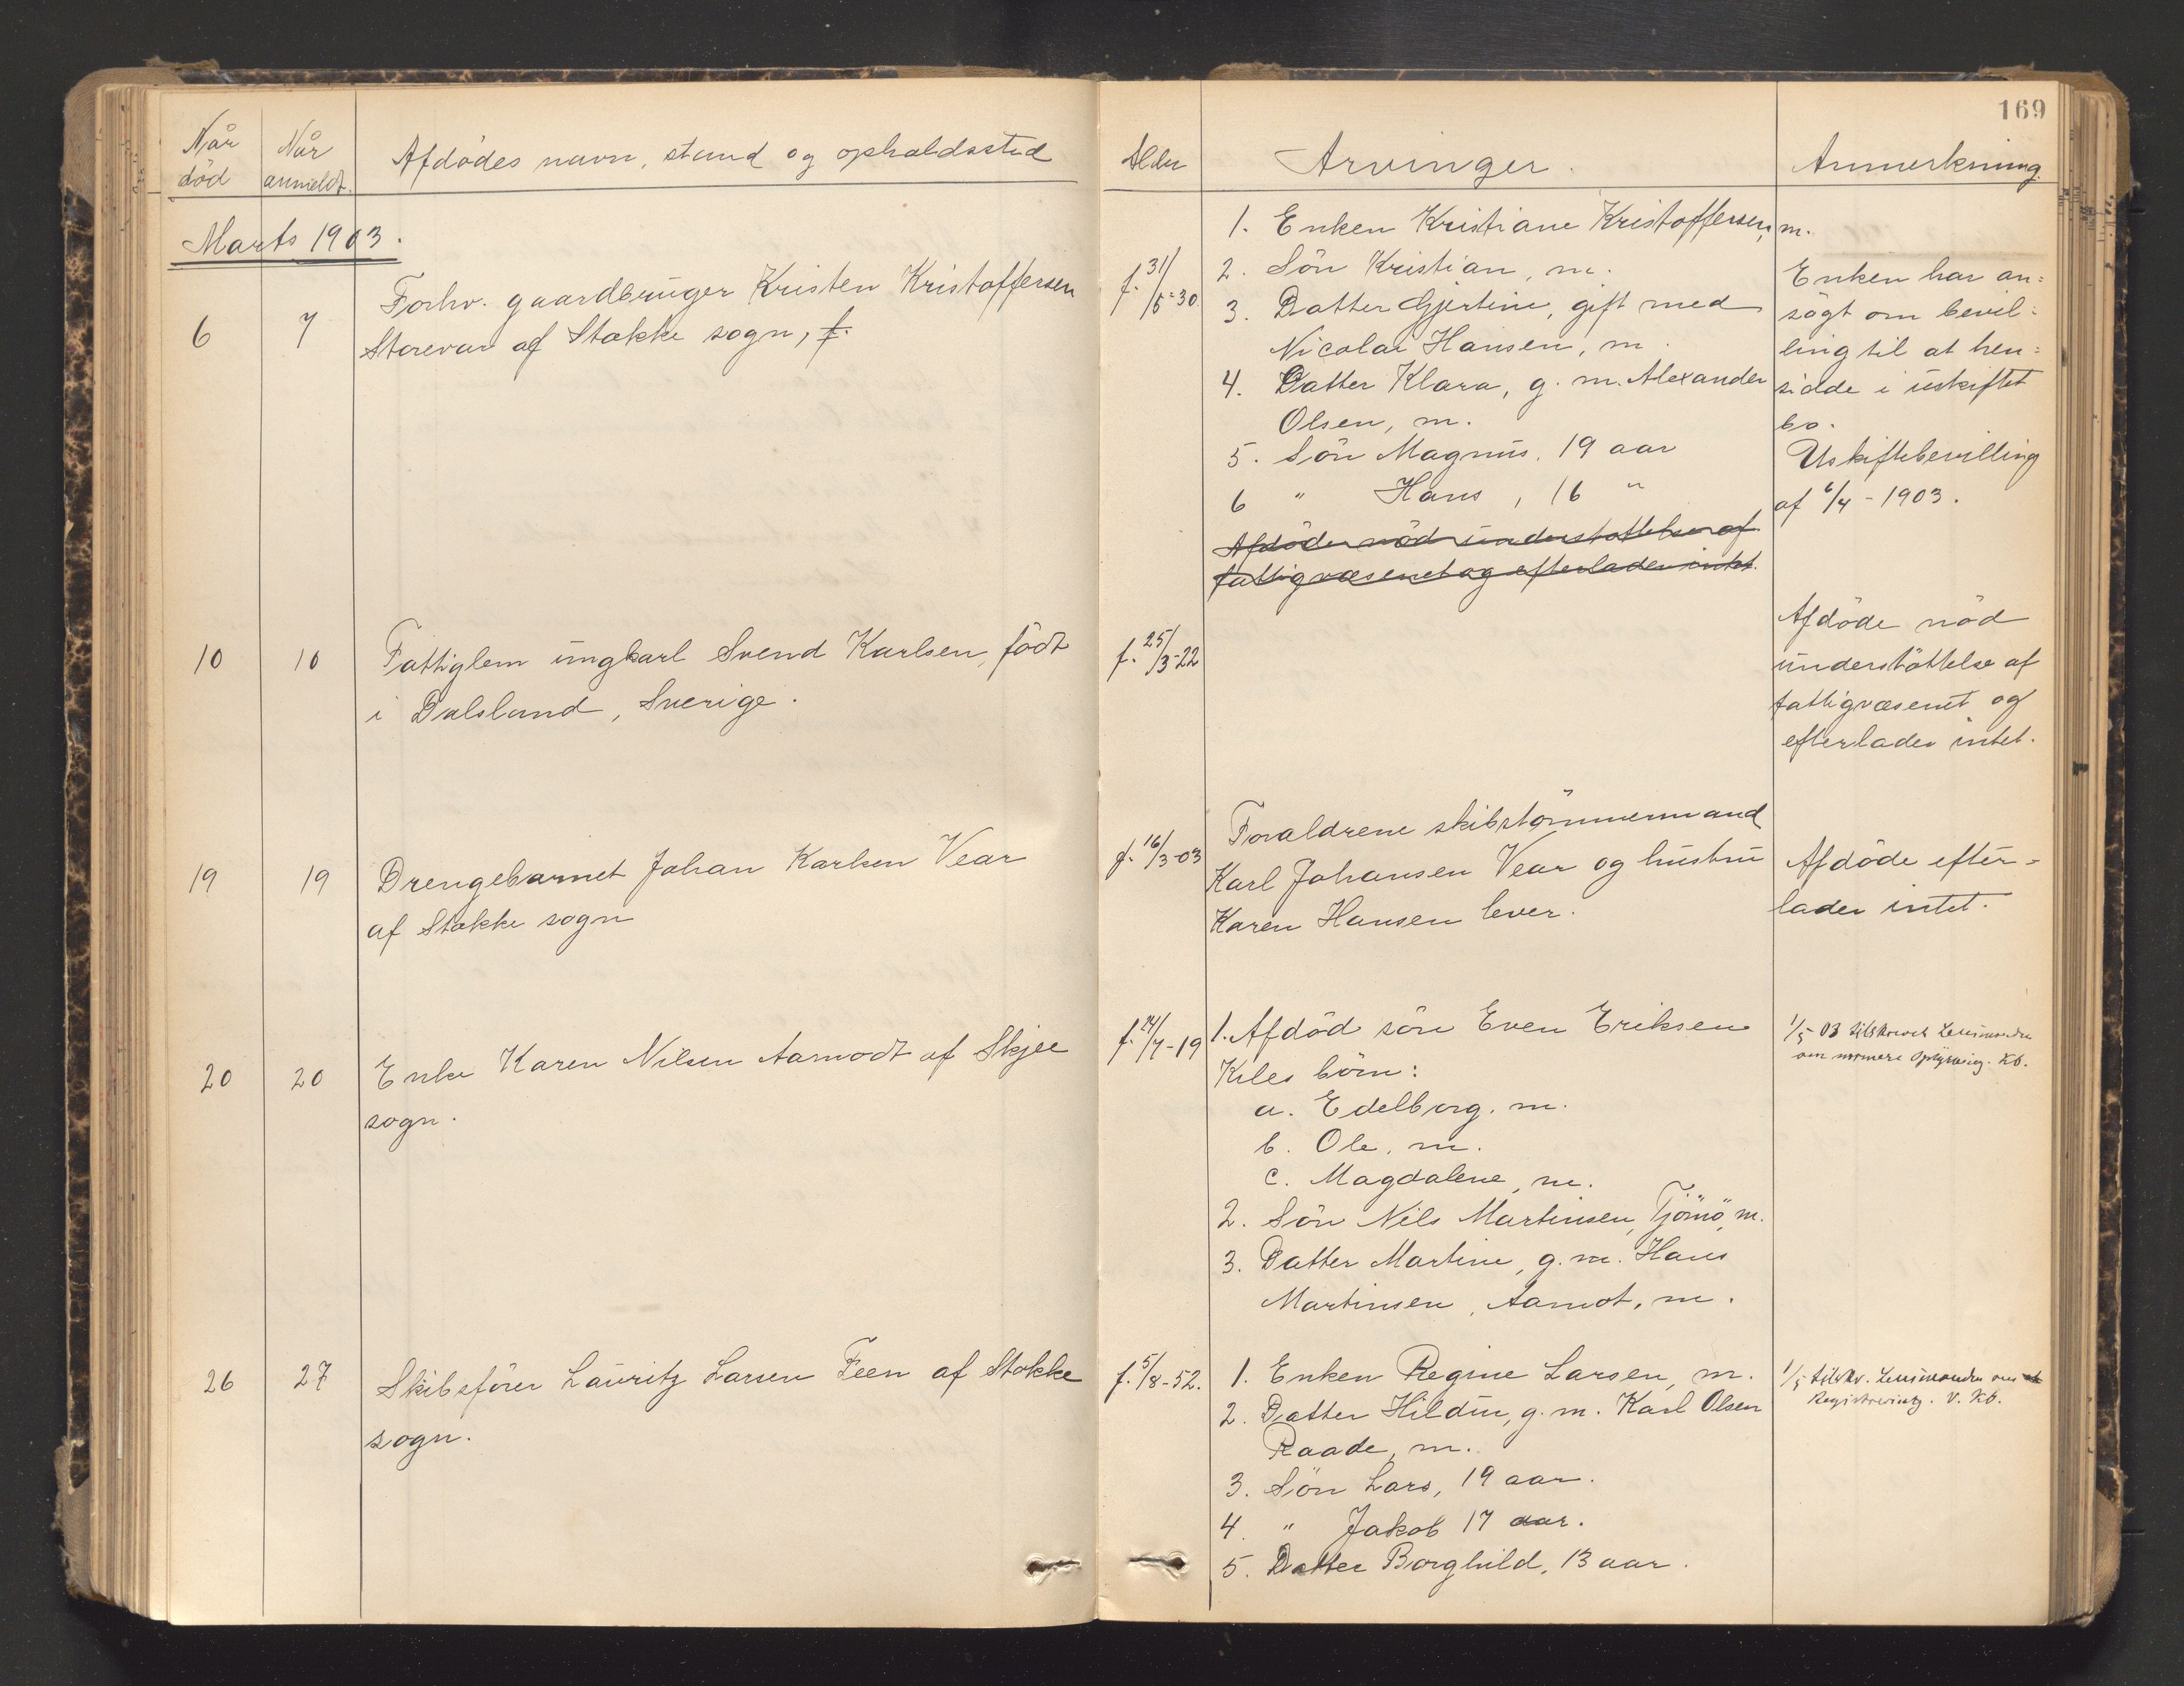 169
Når død
Når anmeldt.
Afdödes navn, stand og opholdssted
Alder
Arvinger.
Anmerkning.
Marts 1903.
6
7
Forhv. gaardbruger Kristen Kristoffersen
Storevar af Stokke sogn, f.
f. 31/5-30
1. Enken Kristiane Kristoffersen, m.
2. Sön Kristian, m.
3. Datter Gjertine, gift med
Nicolai Hansen, m.
4. Datter Klara, g. m. Alexander
Olsen, m.
5. Sön Magnus, 19 aar
6 " Hans, 16 "
Afdöde nöd understøttelse af
fattigvæsenet og efterlader intet.
Enken har an=
sögt om bevil=
ling til at hen=
sidde i uskiftet
bo.
Uskiftebevilling
af 6/4 - 1903.
10
10
Fattiglem ungkarl Svend Karlsen, födt
i Dalsland, Sverige.
f. 25/3-22
Afdöde nöd
understöttelse af
fattigvæsenet og
efterlader intet.
19
19
Drengebarnet Johan Karlsen Vear
af Stokke sogn
f. 16/3-03
Foraldrene skibstömmermand
Karl Johansen Vear og hustru
Karen Hansen lever.
Afdöde efter=
lader intet.
20
20
Enke Karen Nilsen Aamodt af Skjee
sogn.
f. 24/7-19
1. Afdöd sön Even Eriksen
Kiles börn:
a. Edelborg. m.
b. Ole, m.
c. Magdalene, m.
2. Sön Nils Martinsen, Tjömö, m.
3. Datter Martine, g. m. Hans
Martinsen, Aamot, m.
1/5 03 tilskrevet Lensmanden
om nærmere Oplysning. Kb.
26
27
Skibsförer Lauritz Larsen Feen af Stokke
sogn.
f. 5/8-52.
1. Enken Regine Larsen, m.
2. Datter Hildur, g. m. Karl Olsen
Raade, m.
3. Sön Lars, 19 aar.
4. " Jakob 17 aar.
5. Datter Borghild, 13 aar.
1/5 tilskr. Lensmanden om
Registrering. V. Kb.